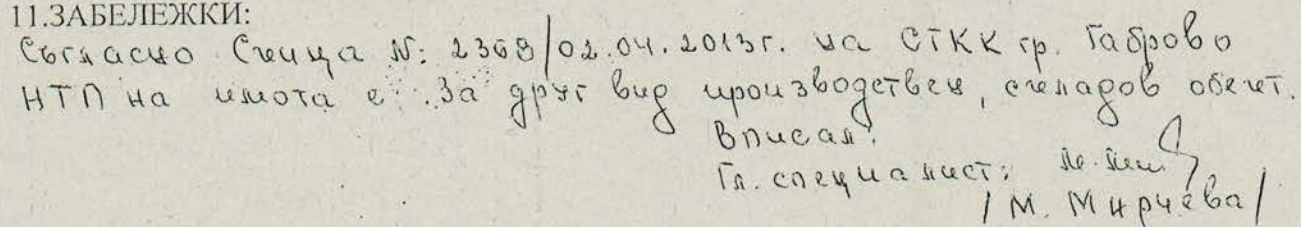 11.ЗАБЕЛЕЖКИ:
Съгласно Скица №: 2368/02.04.2013г. на СГКК гр. Габрово
НТП на имота е: За друг вид производствен, складов обект.
Вписал:
Гл. специалист:
/М. Мирчева/